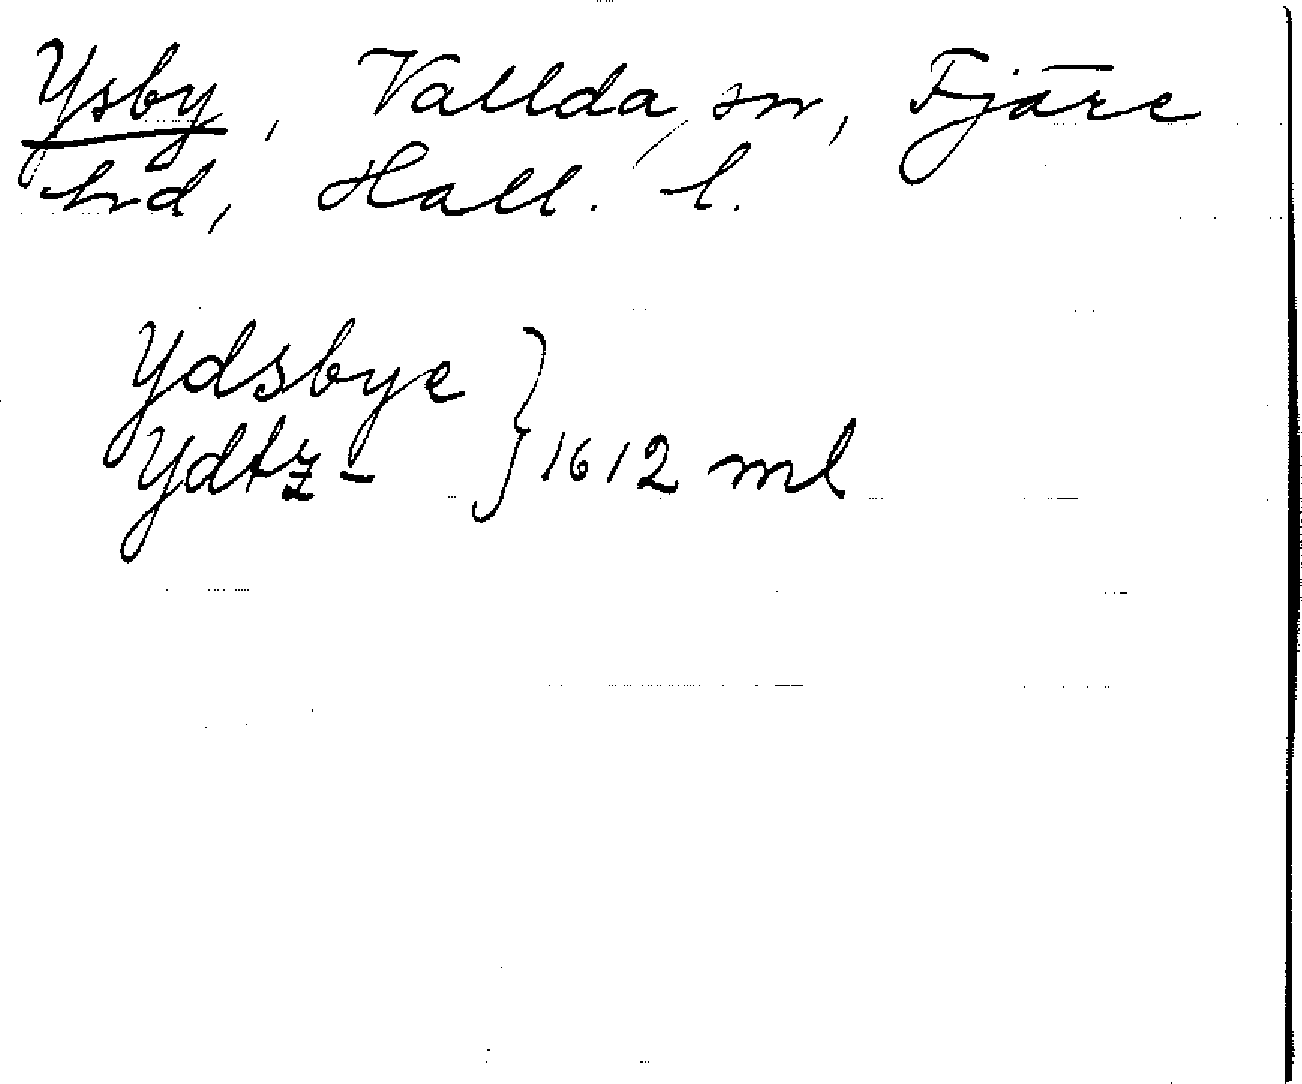 Ysby, Vallda sn, Fjäre
hrd, Hall. l.
Ydsbye
Ydtz- } 1612 ml